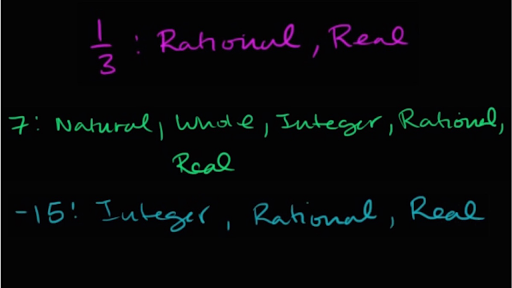 1/3 : Rational, Real
7: Natural, Whole, Integer, Rational,
Real
-15: Integer, Rational, Real